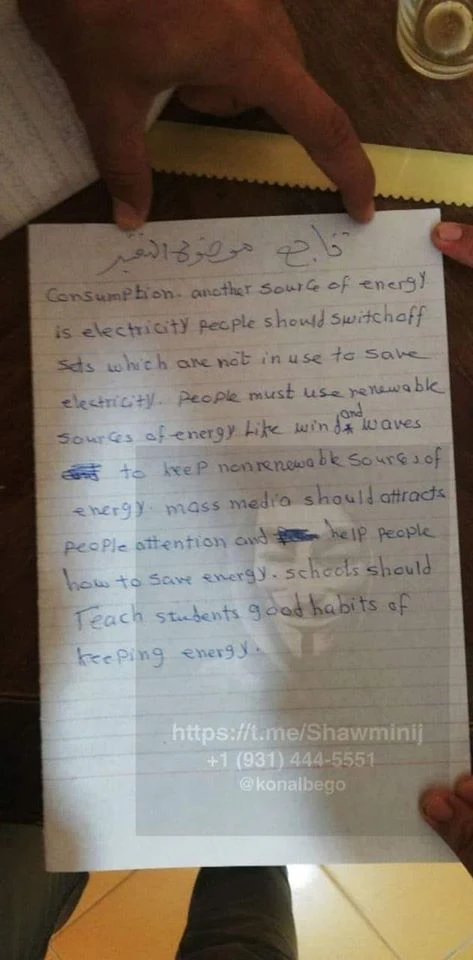 تابع موضوع التعبير
Consumption. another source of energy
is electricity people should switch off
sets which are not in use to save
electricity. People must use renewable
sources of energy Like wind and waves
to keep nonrenewable sources of
energy. mass media should attracts
people attention and help people
how to save energy. schools should
Teach students good habits of
keeping energy.
https://t.me/Shawminij
+1 (931) 444-5551
@konalbego